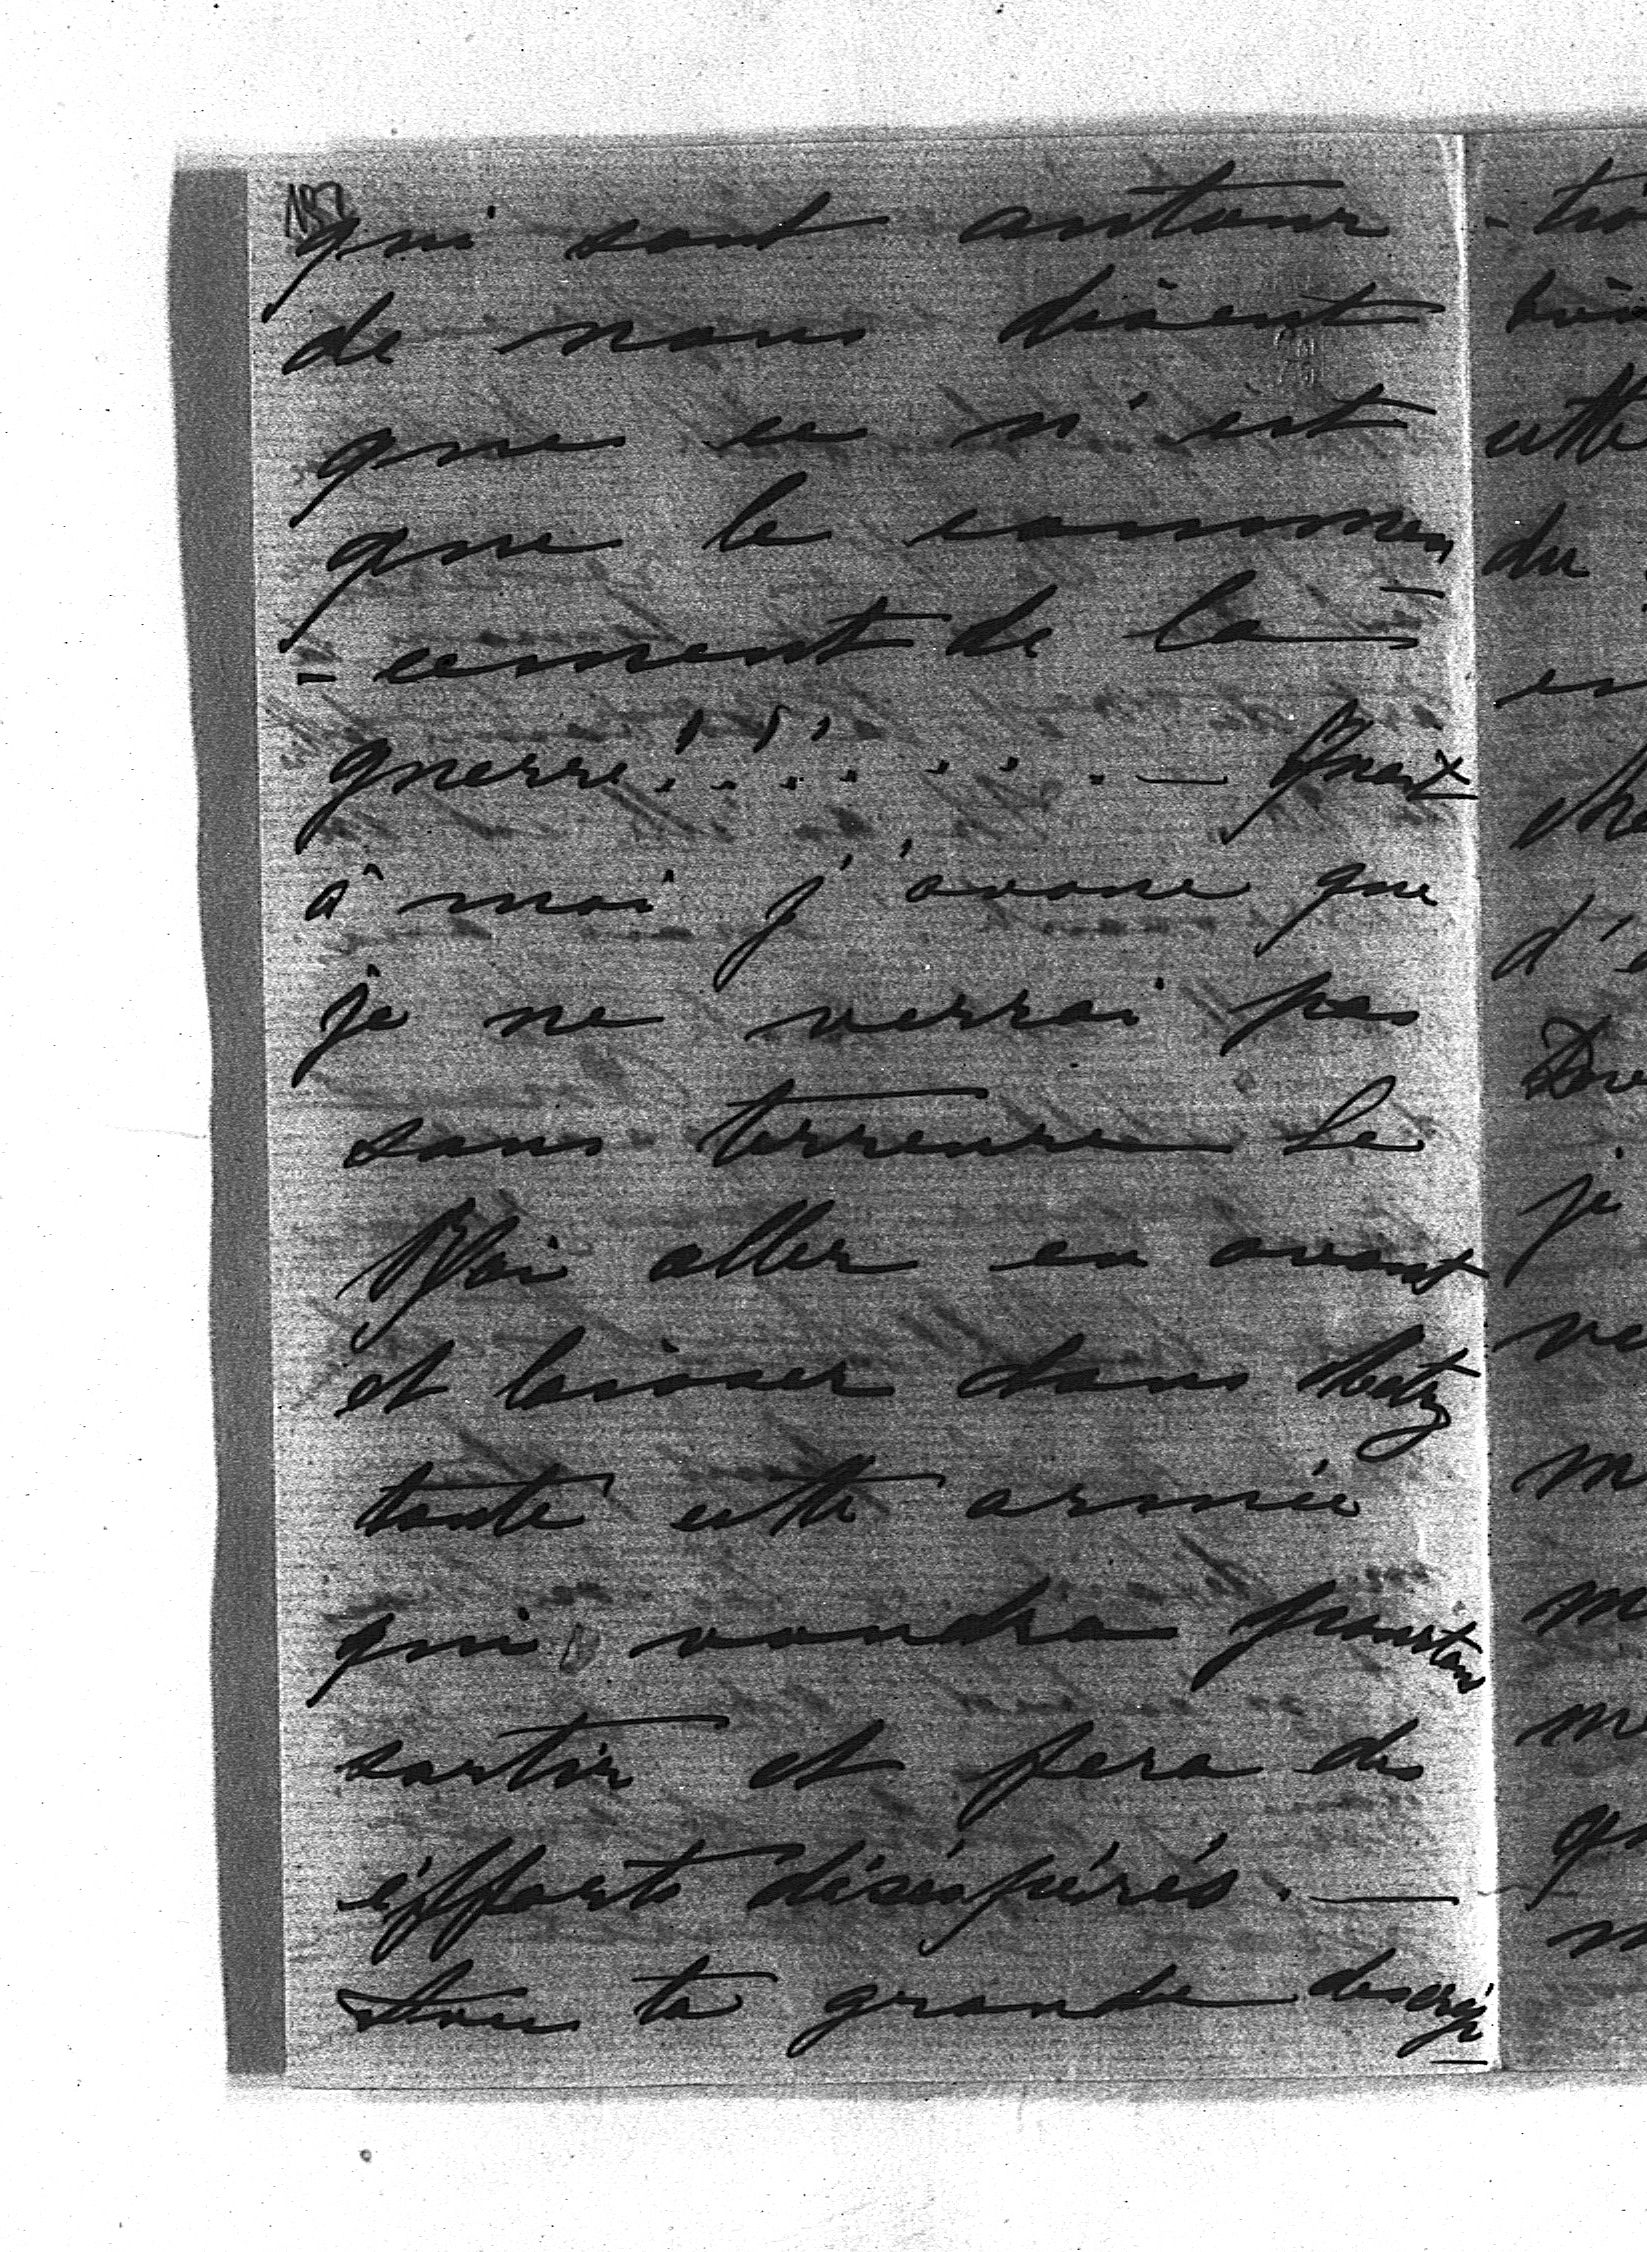 187
qui sont autour
de nous disent
que ce n'est
que le commen
- cement de la
guerre!!!..... — Quant
à moi j'avoue que
je ne verrai pas
sans terreure le
Roi aller en avant
et laisser dans Metz
toute cette armée
qui voudra pourtant
sortir et fera des
éfforts déséspérés. —
ta grande descrip
- tro
cette
du
d'
je